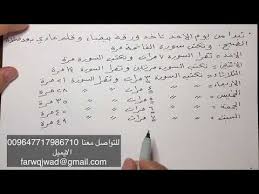 تبدأ من يوم الأحد تأخذ ورقة بيضاء وقلم عادي
الصبح وتكتب سورة الفاتحة مرة
الأحد تقرأ السورة ٧ مرات وتكتب السورة مرة
الاثنين تكتب السورة مرتين وتقرأ السورة ١٤ مرة
الثلاثاء " " ٣ مرات " "
" " ٤ مرات " "
" ٥ مرات " " ٣٥ مرة
الجمعة " ٦ مرات " "
السبت " ٧ مرات " " ٤٩ مرة
للتواصل معنا 009647717986710
الايميل
farwqjwad@gmail.com